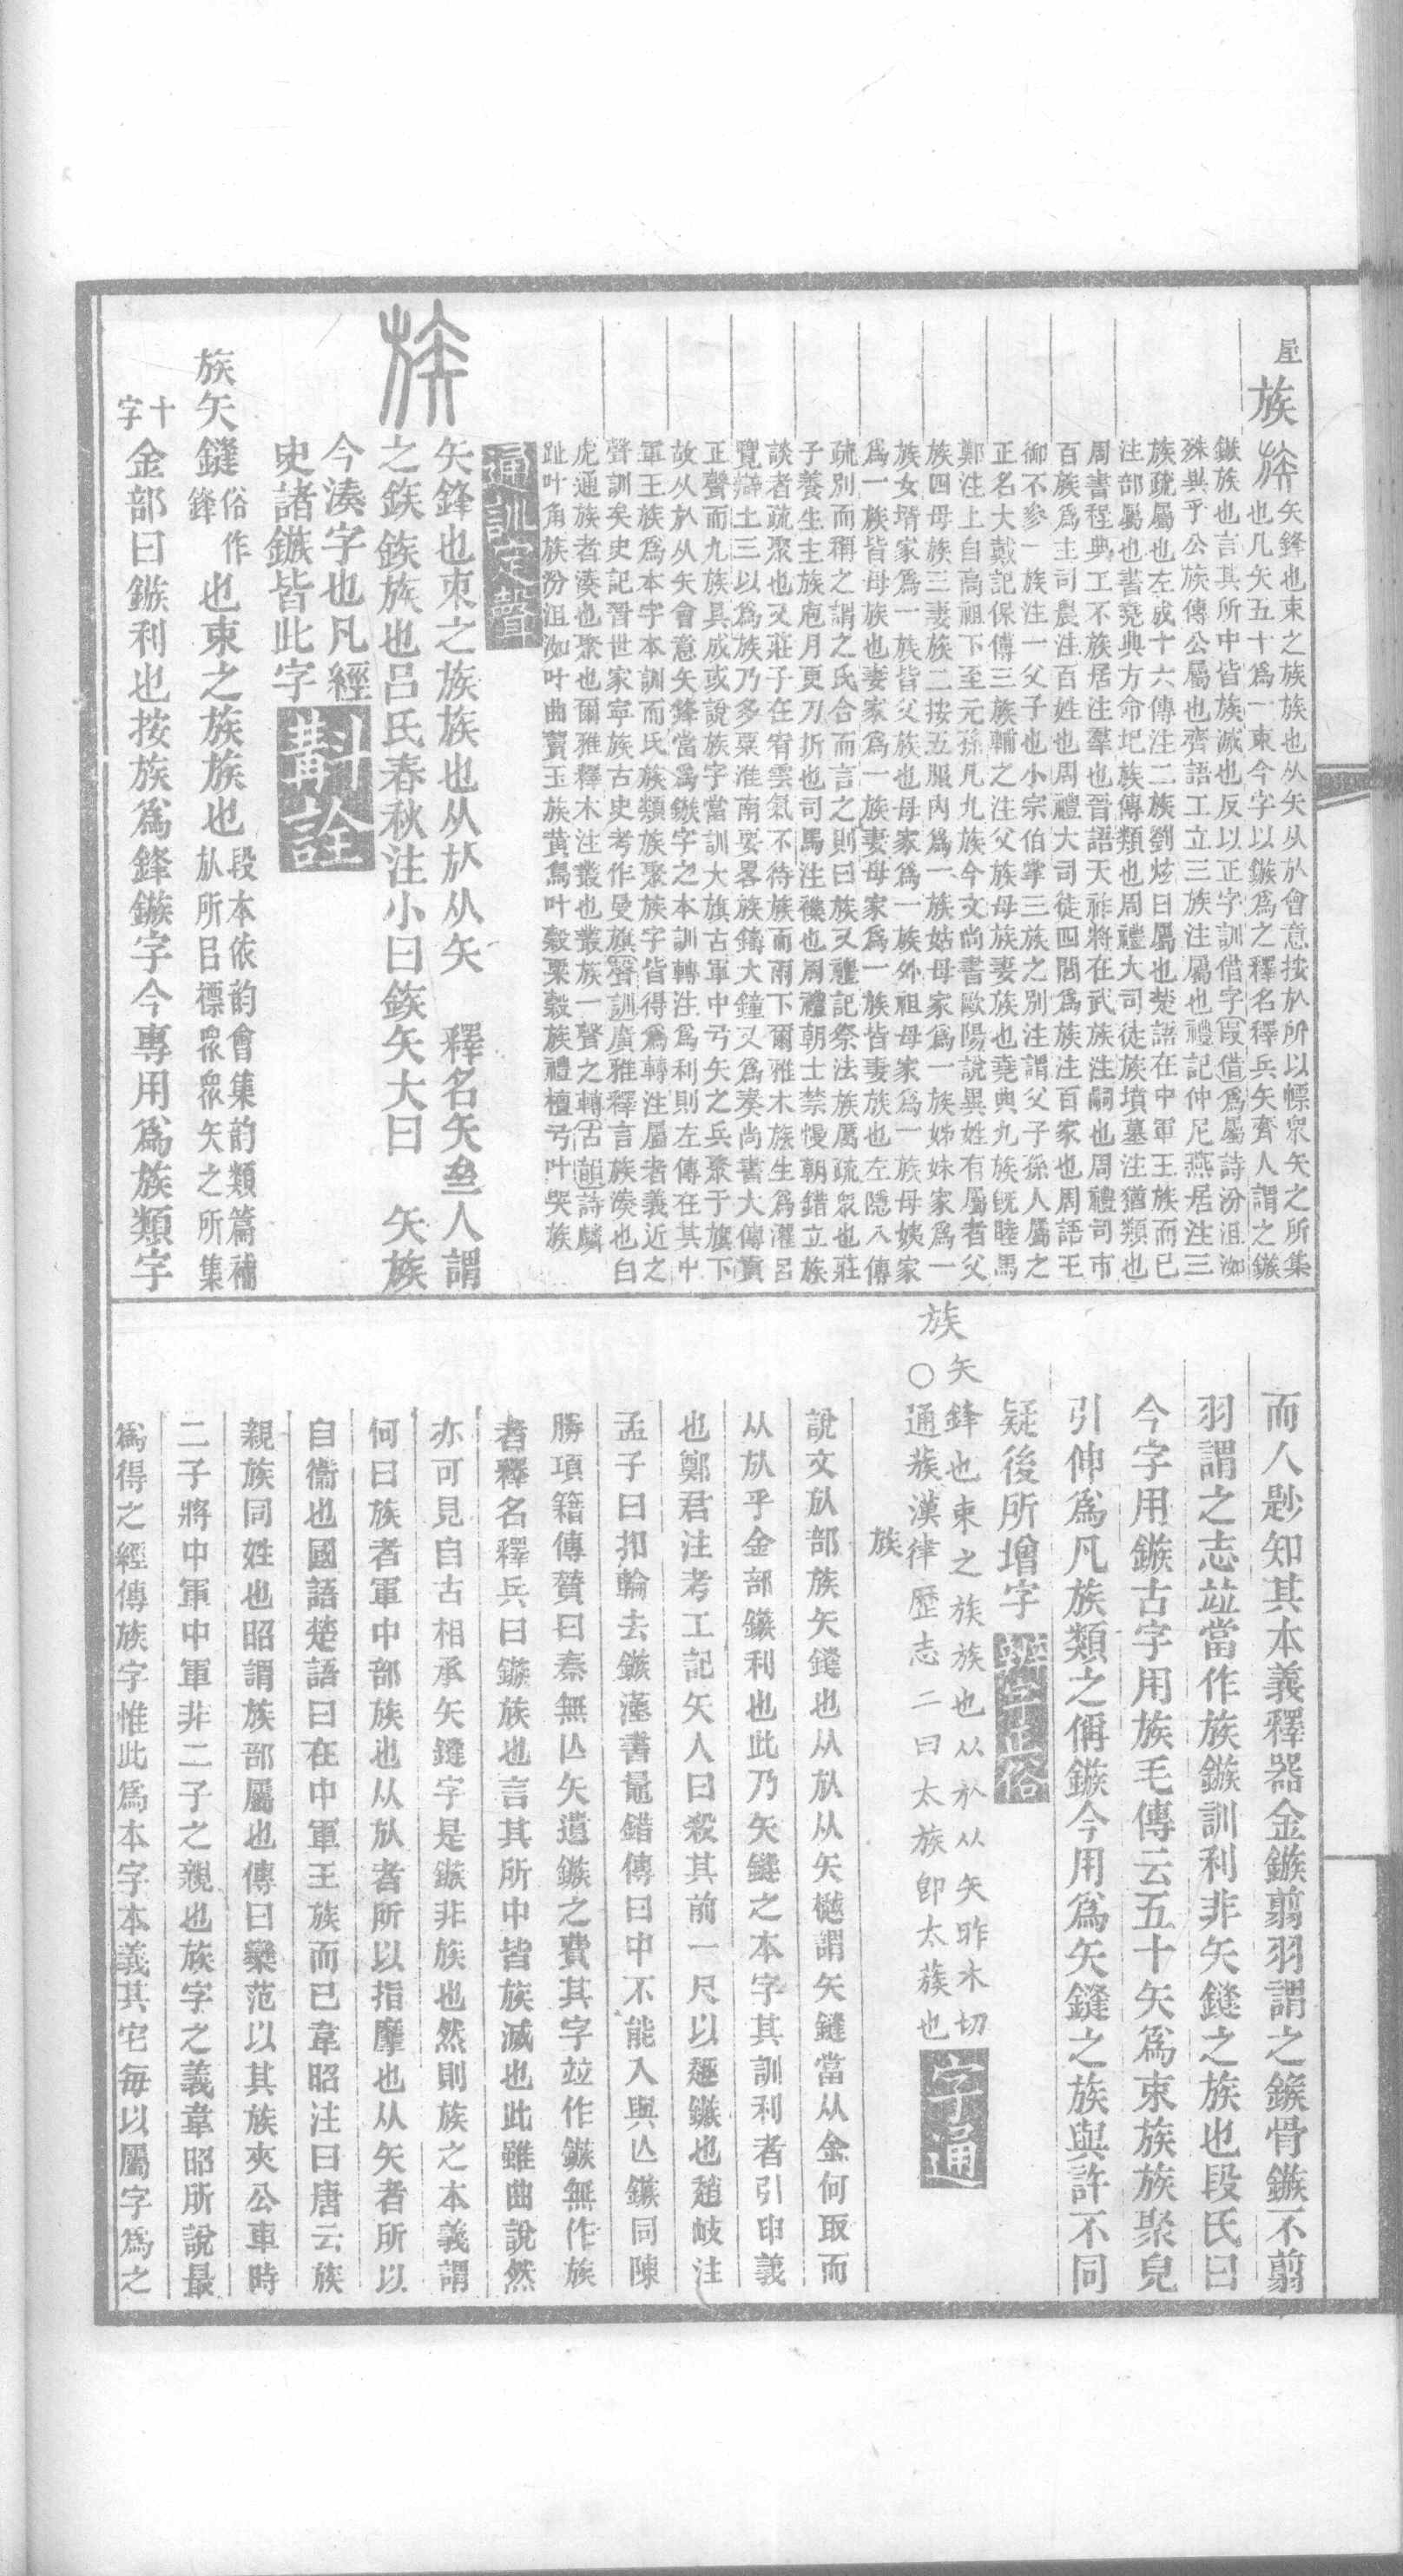 屋
族
矢鋒也束之族族也从矢从㫃會意按㫃所以幖眾矢之所集
也凡矢五十爲一束今字以鏃爲之釋名釋兵矢齊人謂之鏃
鏃族也言其所中皆族滅也反以正字訓借字叚借爲屬詩汾沮洳
殊異乎公族傳公屬也齊語工立三族注屬也禮記仲尼燕居注三
族疏屬也左成十六傳注二族劉炫曰屬也楚語在中軍王族而已
注部屬也書堯典方命圯族傳類也周禮大司徒族墳墓注猶類也
周書程典工不族居注羣也晉語天祚將在武族注嗣也周禮司市
百族爲主司農注百姓也周禮大司徒四閭爲族注百家也周語王
御不參一族注一父子也小宗伯掌三族之別注謂父子孫人屬之
正名大戴記保傅三族輔之注父族母族妻族也堯典九族既睦馬
鄭注上自高祖下至元孫凡九族今文尚書歐陽說異姓有屬者父
族四母族三妻族二按五服內爲一族姑母家爲一族姊妹家爲一
族女壻家爲一族皆父族也母家爲一族外祖母家爲一族母姨家
爲一族皆母族也妻家爲一族妻母家爲一族皆妻族也左隱八傳
疏別而稱之謂之氏合而言之則曰族又禮記祭法族厲疏眾也莊
子養生主族庖月更刀折也司馬注雜也周禮朝士禁慢朝錯立族
談者疏聚也又莊子在宥雲氣不待族而雨下爾雅木族生爲灌呂
覽辯土三以爲族乃多粟淮南要畧族鑄大鐘又爲奏尚書大傳賁
正聲而九族具成或說族字當訓大旗古軍中弓矢之兵聚于旗下
故从㫃从矢會意矢鋒當爲鏃字之本訓轉注爲利則左傳在其中
軍王族爲本字本訓而氏族類族聚族字皆得爲轉注屬者義近之
聲訓矣史記晉世家寧族古史考作曼旗聲訓廣雅釋言族湊也白
虎通族者湊也聚也爾雅釋木注叢也叢族一聲之轉古韻詩麟
趾叶角族汾沮洳叶曲藚玉族黃鳥叶穀粟穀族禮檀弓叶哭族
通訓定聲
矢鋒也束之族族也从㫃从矢 釋名矢亝人謂
之鏃鏃族也呂氏春秋注小曰鏃矢大曰 矢族
今湊字也凡經
史諸鏃皆此字
斠詮
族矢鏠俗作鋒也束之族族也段本依韵會集韵類篇補㫃所㠯標眾眾矢之所集
十字金部曰鏃利也按族爲鋒鏃字今專用爲族類字
而人尟知其本義釋器金鏃翦羽謂之鍭骨鏃不翦
羽謂之志竝當作族鏃訓利非矢鏠之族也段氏曰
今字用鏃古字用族毛傳云五十矢爲束族族聚皃
引伸爲凡族類之偁鏃今用爲矢鏠之族與許不同
疑後所增字
族
矢鋒也束之族族也从㫃从矢昨木切
○通蔟漢律歷志二曰太族卽太蔟也
字通
族
說文㫃部族矢鏠也从㫃从矢樾謂矢鏠當从金何取而
从㫃乎金部鏃利也此乃矢鏠之本字其訓利者引申義
也鄭君注考工記矢人曰殺其前一尺以趣鏃也趙岐注
孟子曰扣輪去鏃漢書鼂錯傳曰中不能入與亾鏃同陳
勝項籍傳贊曰秦無亾矢遺鏃之費其字竝作鏃無作族
者釋名釋兵曰鏃族也言其所中皆族滅也此雖曲說然
亦可見自古相承矢鏠字是鏃非族也然則族之本義謂
何曰族者軍中部族也从㫃者所以指摩也从矢者所以
自衞也國語楚語曰在中軍王族而已韋昭注曰唐云族
親族同姓也昭謂族部屬也傳曰欒范以其族夾公車時
二子將中軍中軍非二子之親也族字之義韋昭所說最
爲得之經傳族字惟此爲本字本義其它每以屬字爲之